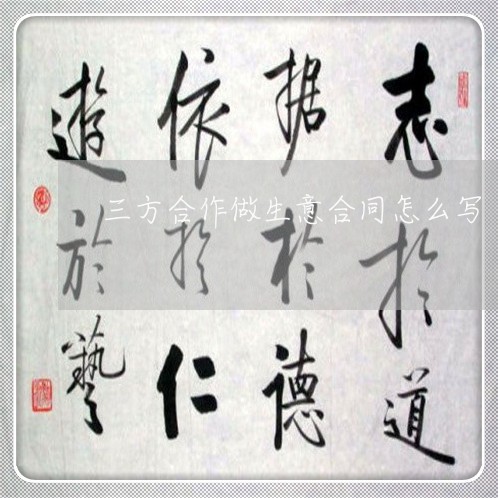 志於道
据於德
依於仁
遊於藝
三方合作做生意合同怎么写